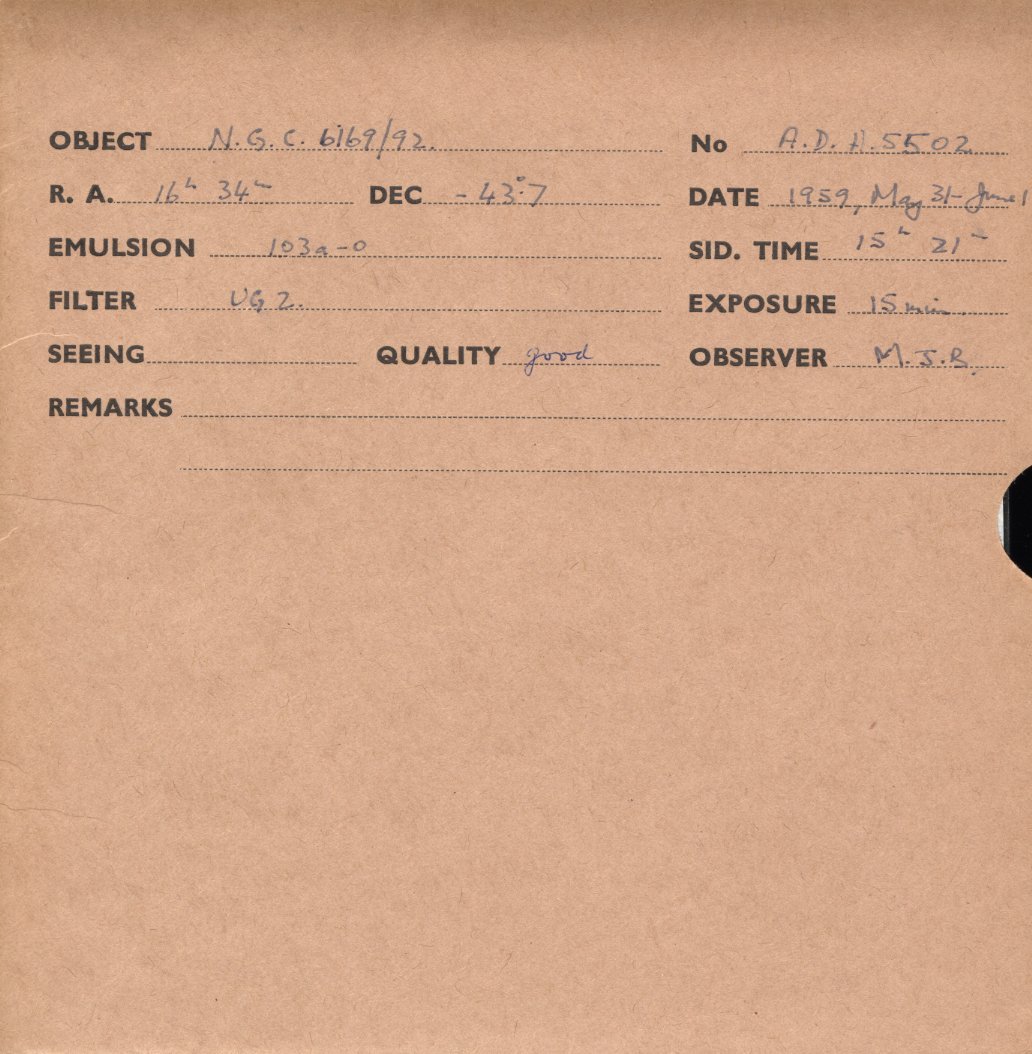 OBJECT N.G.C. 6169/92. No A.D.H.5502
R. A. 16h 34m DEC -43°.7 DATE 1959, May 31-June 1
EMULSION 103a-O SID. TIME 15h 21m
FILTER UG 2. EXPOSURE 15 min.
SEEING QUALITY good OBSERVER M.J.B.
REMARKS